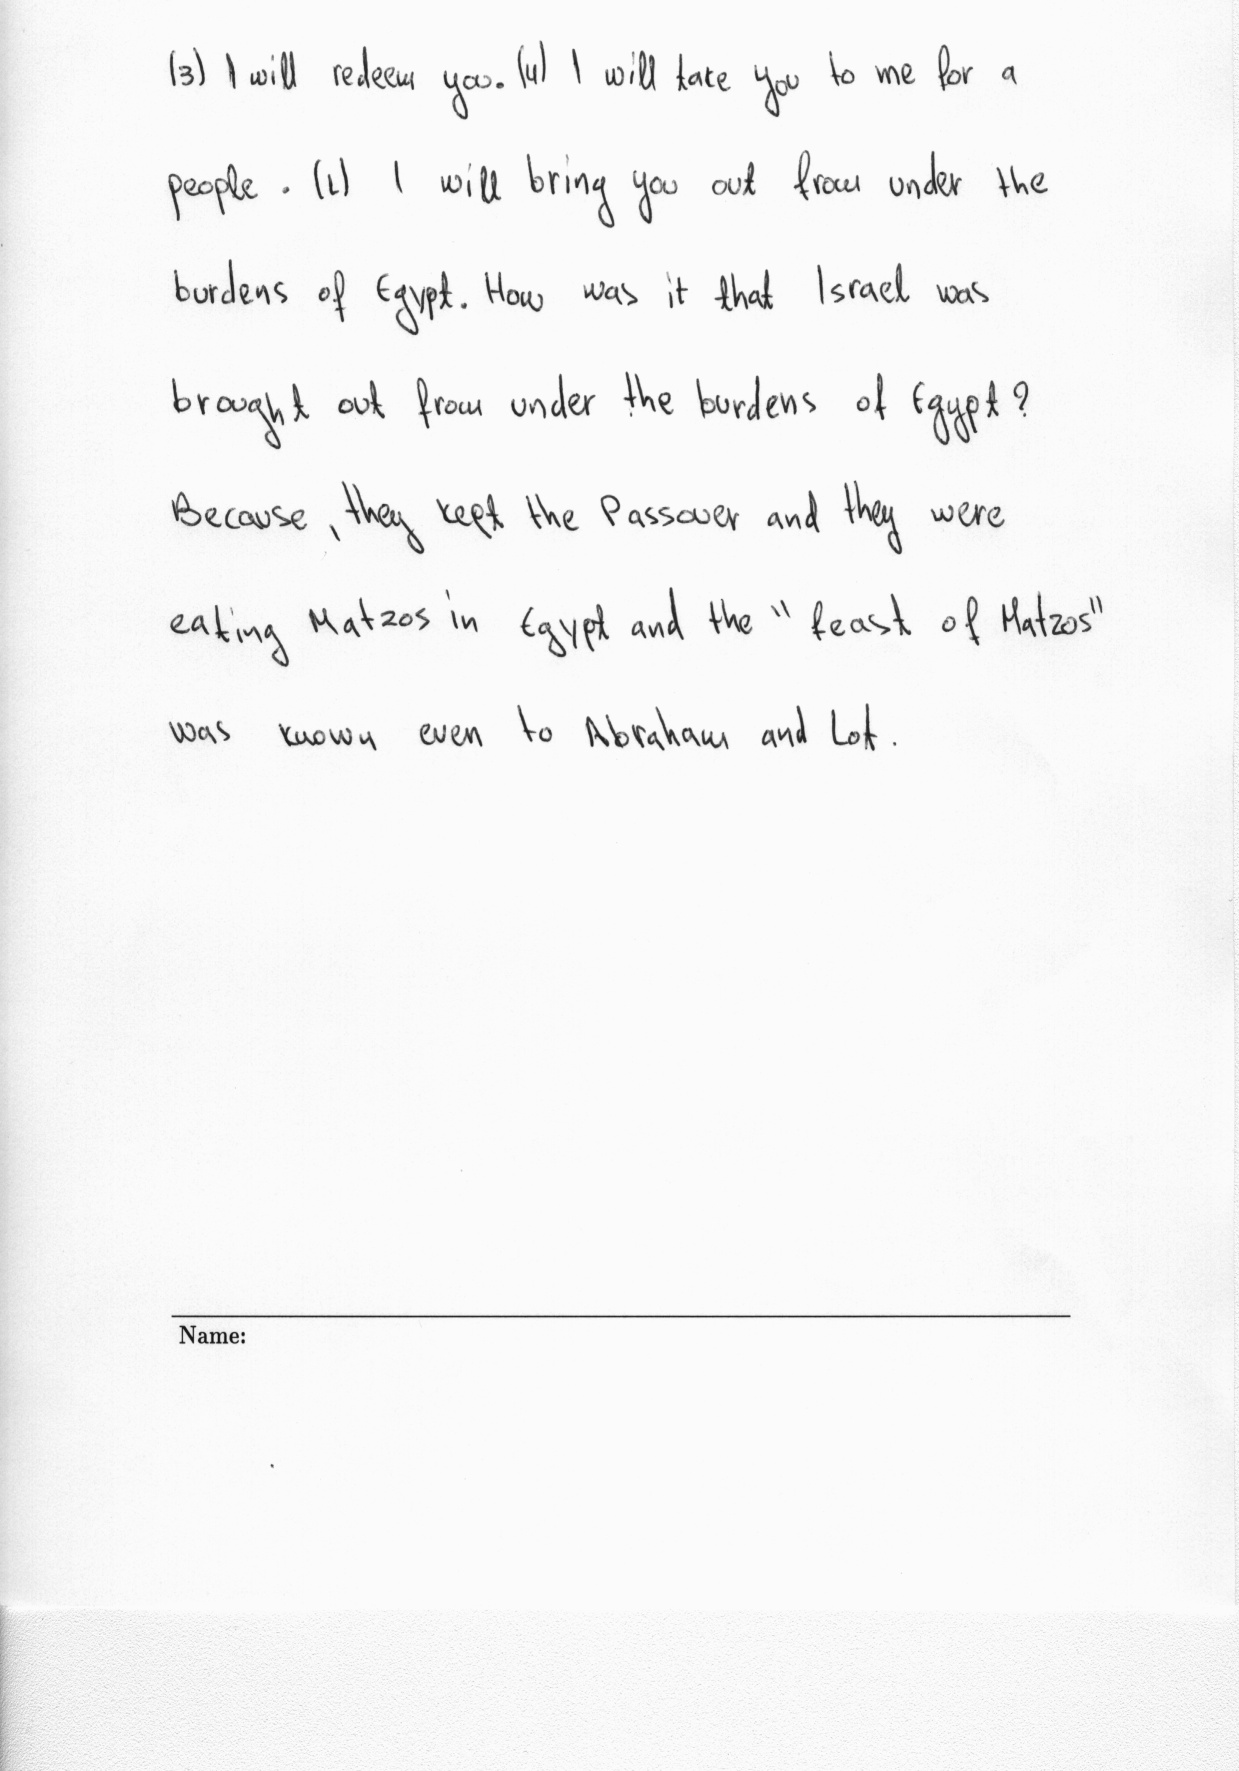 (3) I will redeem you. (4) I will take you to me for a
people. (1) I will bring you out from under the
burdens of Egypt. How was it that Israel was
brought out from under the burdens of Egypt?
Because, they kept the Passover and they were
eating Matzos in Egypt and the "feast of Matzos"
was known even to Abraham and Lot.
Name: